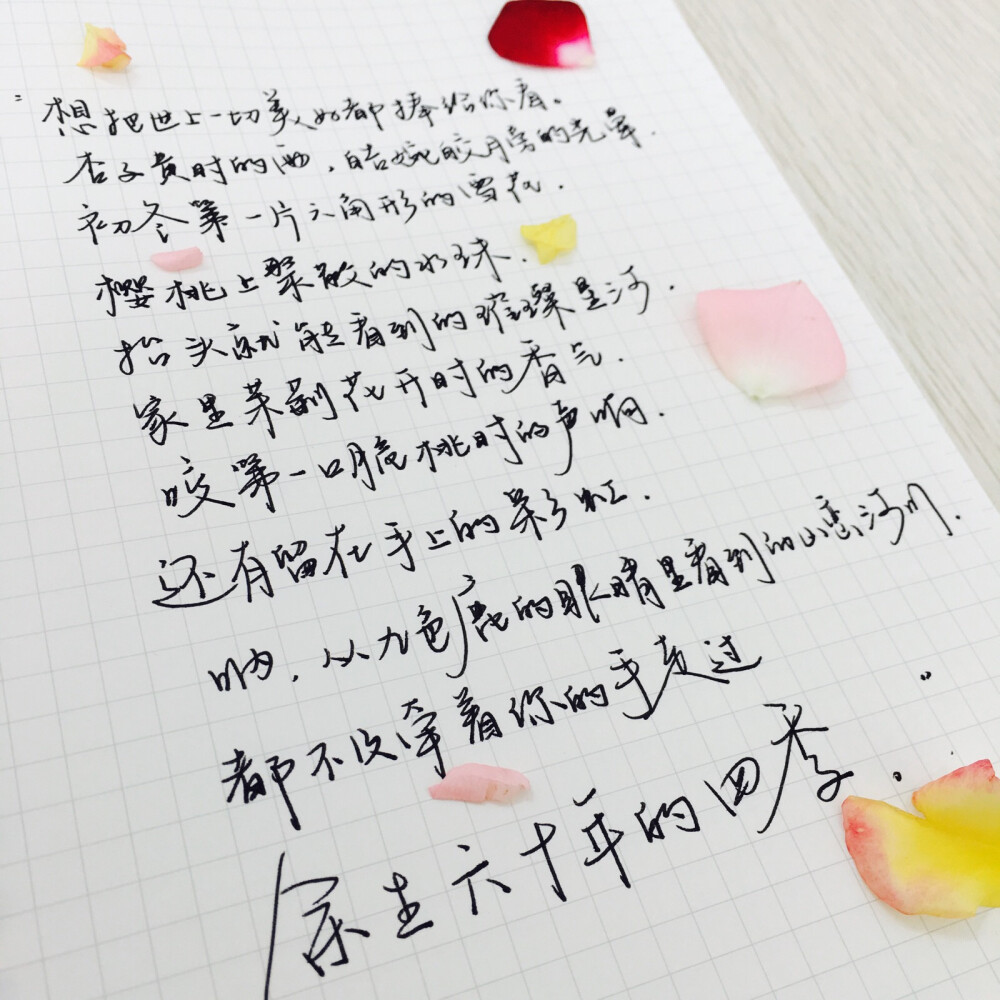 "想把世上一切美好都捧给你看。
杏子黄时的雨,皓皎月旁的光晕.
初冬第一片六角形的雪花.
樱桃上聚散的水珠.
抬头就能看到的璀璨星河.
家里茉莉花开时的香气.
咬第一口脆桃时的声响.
还有留在手上的彩虹.
呐,从九色鹿的眼睛里看到的山峦河川.
都不及牵着你的手走过
余生六十年的四季."